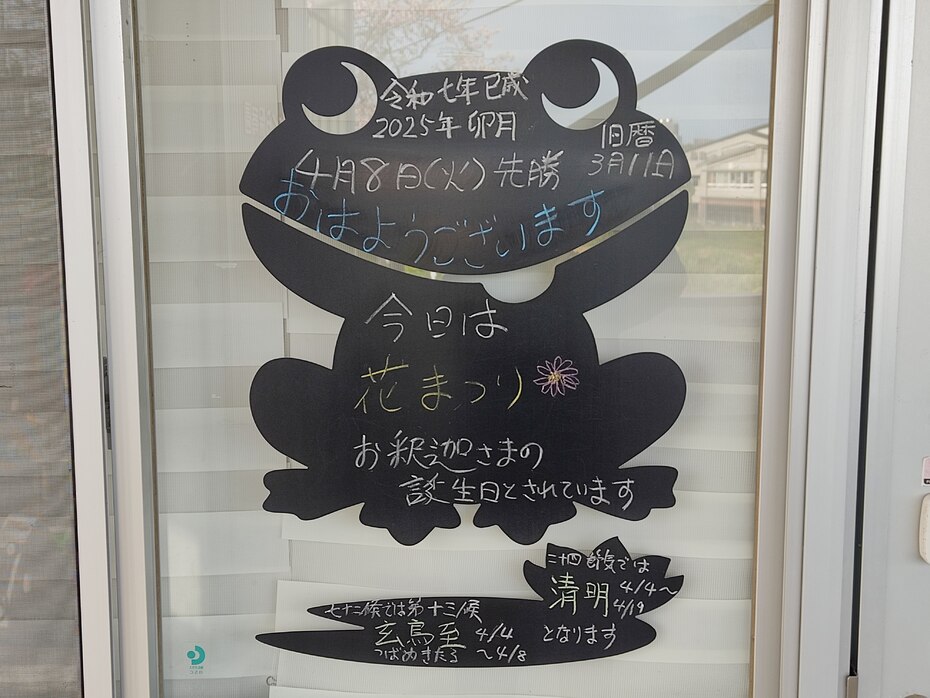 令和七年 乙巳
2025年 卯月
旧暦
3月11日
4月8日(火)先勝
おはようございます
今日は
花まつり
お釈迦さまの
誕生日とされています
二十四節気では
清明 4/4〜
4/19
となります
七十二候では第十三候
玄鳥至 4/4
つばめきたる 〜4/8